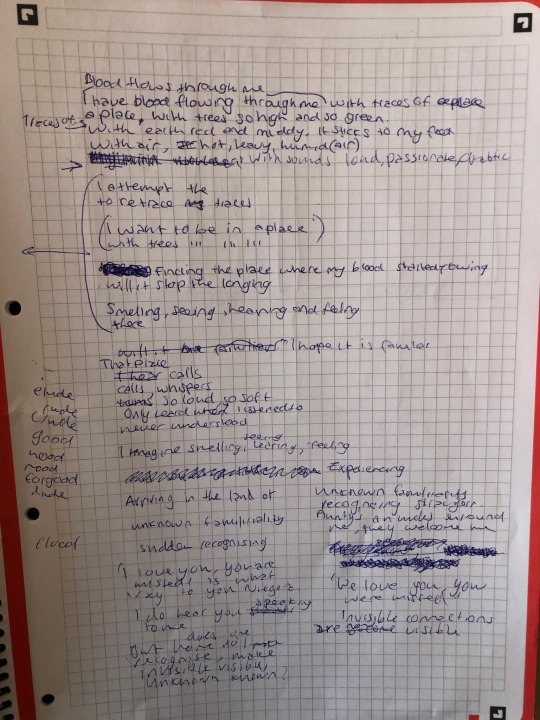 Blood flows through me
I have blood flowing through me with traces of
a place, with trees so high and so green.
Traces of
With earth red and muddy, it sticks to my feet
with air, hot, heavy, humid (air)
with sounds loud, passionate,
I attempt the
to retrace my traces
(I want to be in a place
with trees " " " " ")
Finding the place where my blood started
will it stop the longing
Smelling, seeing, hearing and feeling
there
will it be familiar I hope it is familiar
That place
I hear calls
calls, whispers
so loud so soft
Only heard when listened to
never understood
elude
jude
good
mood
forgood
I imagine smelling, seeing, feeling
Experiencing
Arriving in the land of
unknown familiarity
sudden recognising
I love you, you are
missed! is what
I say to you
I do hear you speaking
to me
But how do I
recognise, make
invisible visible,
Unknown known?
Unknown familiarity
recognising strangers
Auntys an uncles surround
me, they welcome me
"We love you, you
were missed"
Invisible connections
are become visible